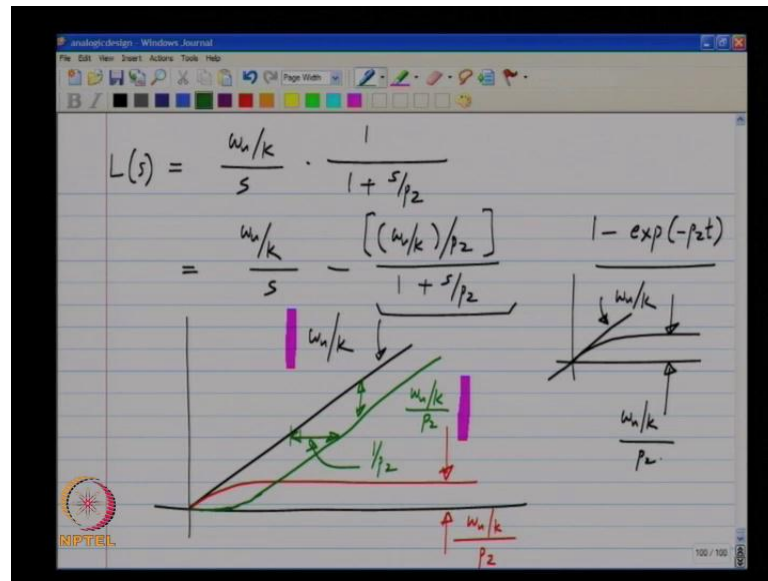 analogicdesign - Windows Journal
File Edit View Insert Actions Tools Help
Page Width
B I
L(s) = ωu/k / s · 1 / 1 + s/p2
= ωu/k / s - [(ωu/k)/p2] / 1 + s/p2
1 - exp(-p2t)
ωu/k
ωu/k / p2.
ωu/k
ωu/k / p2
1/p2
ωu/k / p2
NPTEL
100 / 100